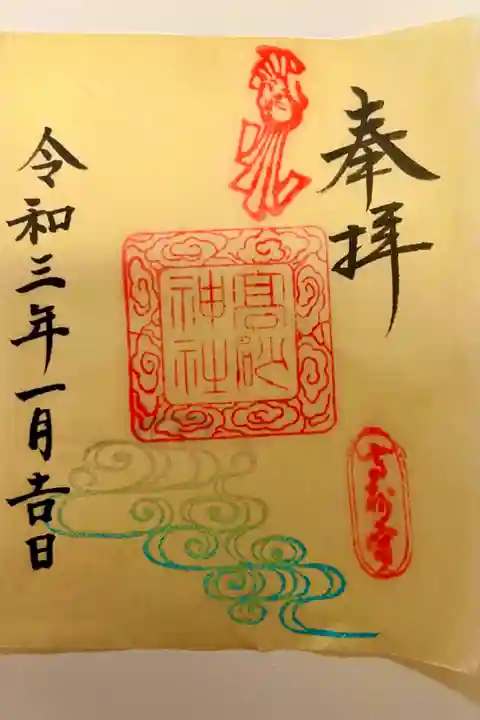 奉拝
高砂
神社
令和三年一月吉日